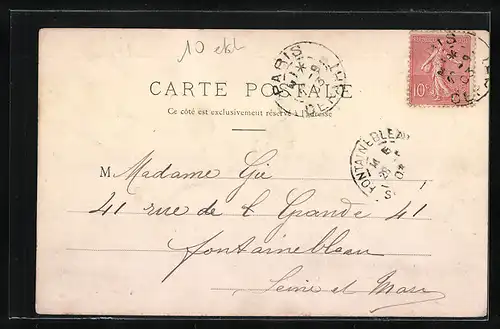 10
PARIS
DEPART
10c
CARTE POSTALE
Ce côté est exclusivement réservé à l'adresse
FONTAINEBLEAU
M. Madame
41 rue de Grande 41
fontainebleau
Seine et Marne